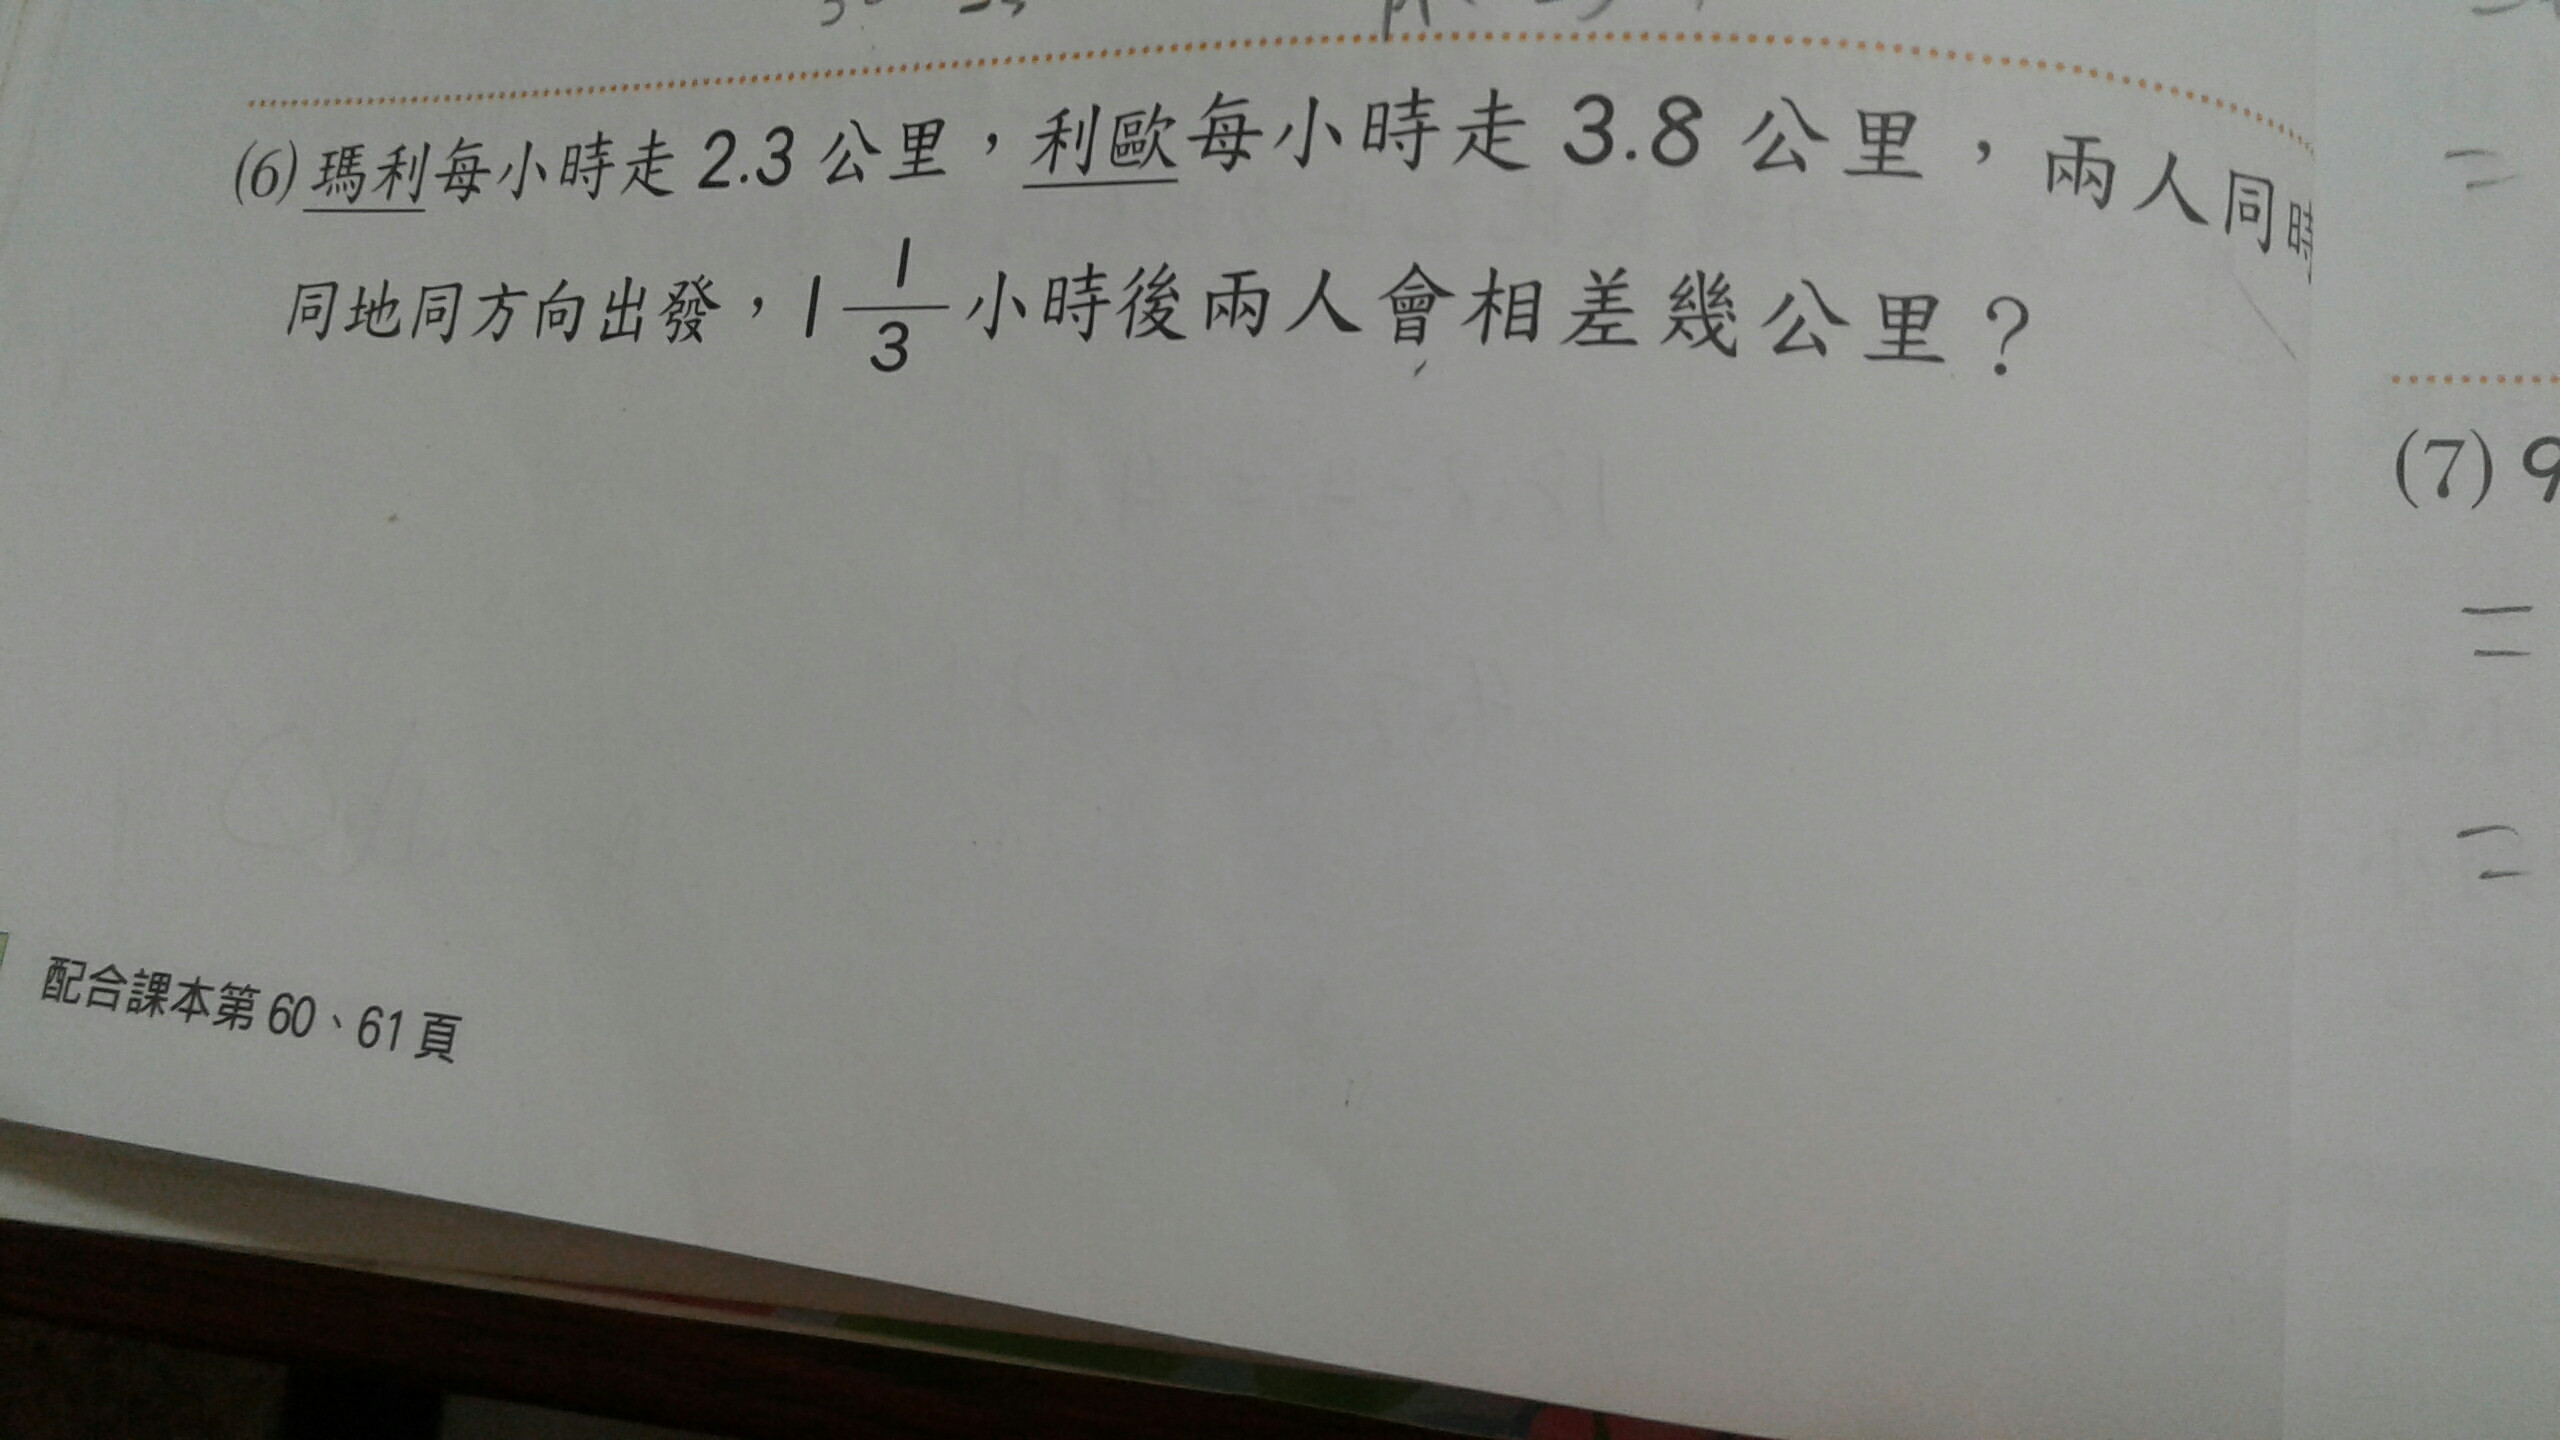 (6) 瑪利每小時走 2.3 公里，利歐每小時走 3.8 公里，兩人同時
同地同方向出發，1 1/3 小時後兩人會相差幾公里？
(7) 9
配合課本第 60、61 頁